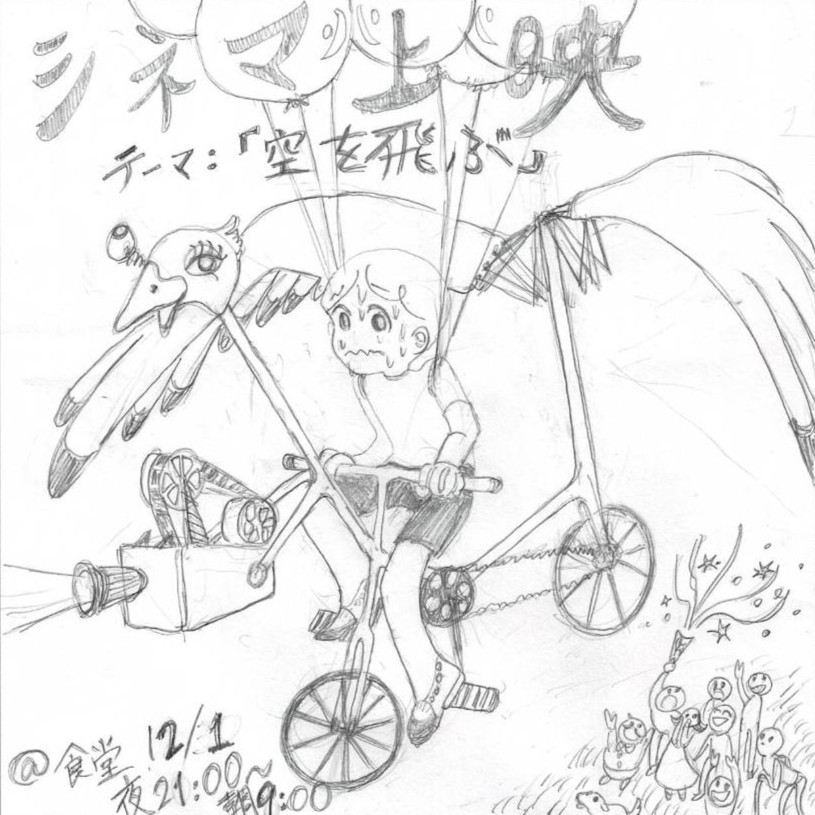 シネマ上映
テーマ:「空を飛ぶ」
@食堂 12/1
夜21:00~
朝9:00